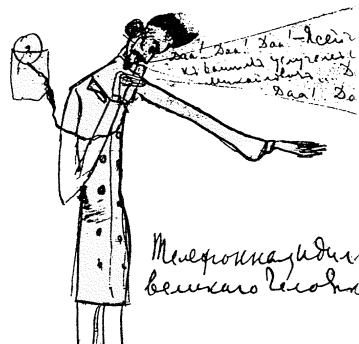 Даа! Даа! Даа! – Ясен
къ вашимъ услугамъ!
Даа! Да
Телефонная идил
великаго Человѣк